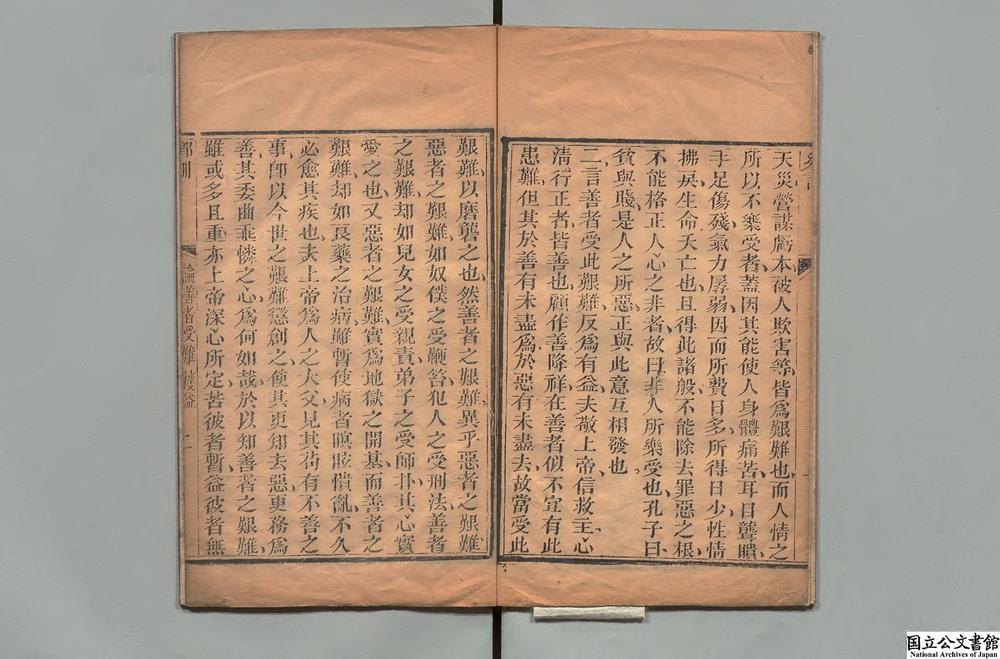 天災營謀虧本被人欺害等皆爲艱難也而人情之
所以不樂受者蓋因其能使人身體痛苦耳目聾瞶
手足傷殘氣力孱弱因而所費日多所得日少性情
拂戾生命夭亡也且得此諸般不能除去罪惡之根
不能格正人心之非者故曰非人所樂受也孔子曰
貧與賤是人之所惡正與此意互相發也
二言善者受此艱難反爲有益夫敬上帝信救主心
淸行正者皆善也顧作善降祥在善者似不宜有此
患難但其於善有未盡爲於惡有未盡去故當受此
艱難以磨礱之也然善者之艱難異乎惡者之艱難
惡者之艱難如奴僕之受鞭笞犯人之受刑法善者
之艱難却如兒女之受親責弟子之受師扑其心實
愛之也又惡者之艱難實爲地獄之開基而善者之
艱難却如良藥之治病雖暫使病者瞑眩憒亂不久
必愈其疾也夫上帝爲人之大父見其苟有不善之
事卽以今世之艱難懲創之使其更知去惡更務爲
善其委曲乖憐之心爲何如哉於以知善者之艱難
雖或多且重亦上帝深心所定苦彼者暫益彼者無
論善者受難獲益 二
国立公文書館
National Archives of Japan